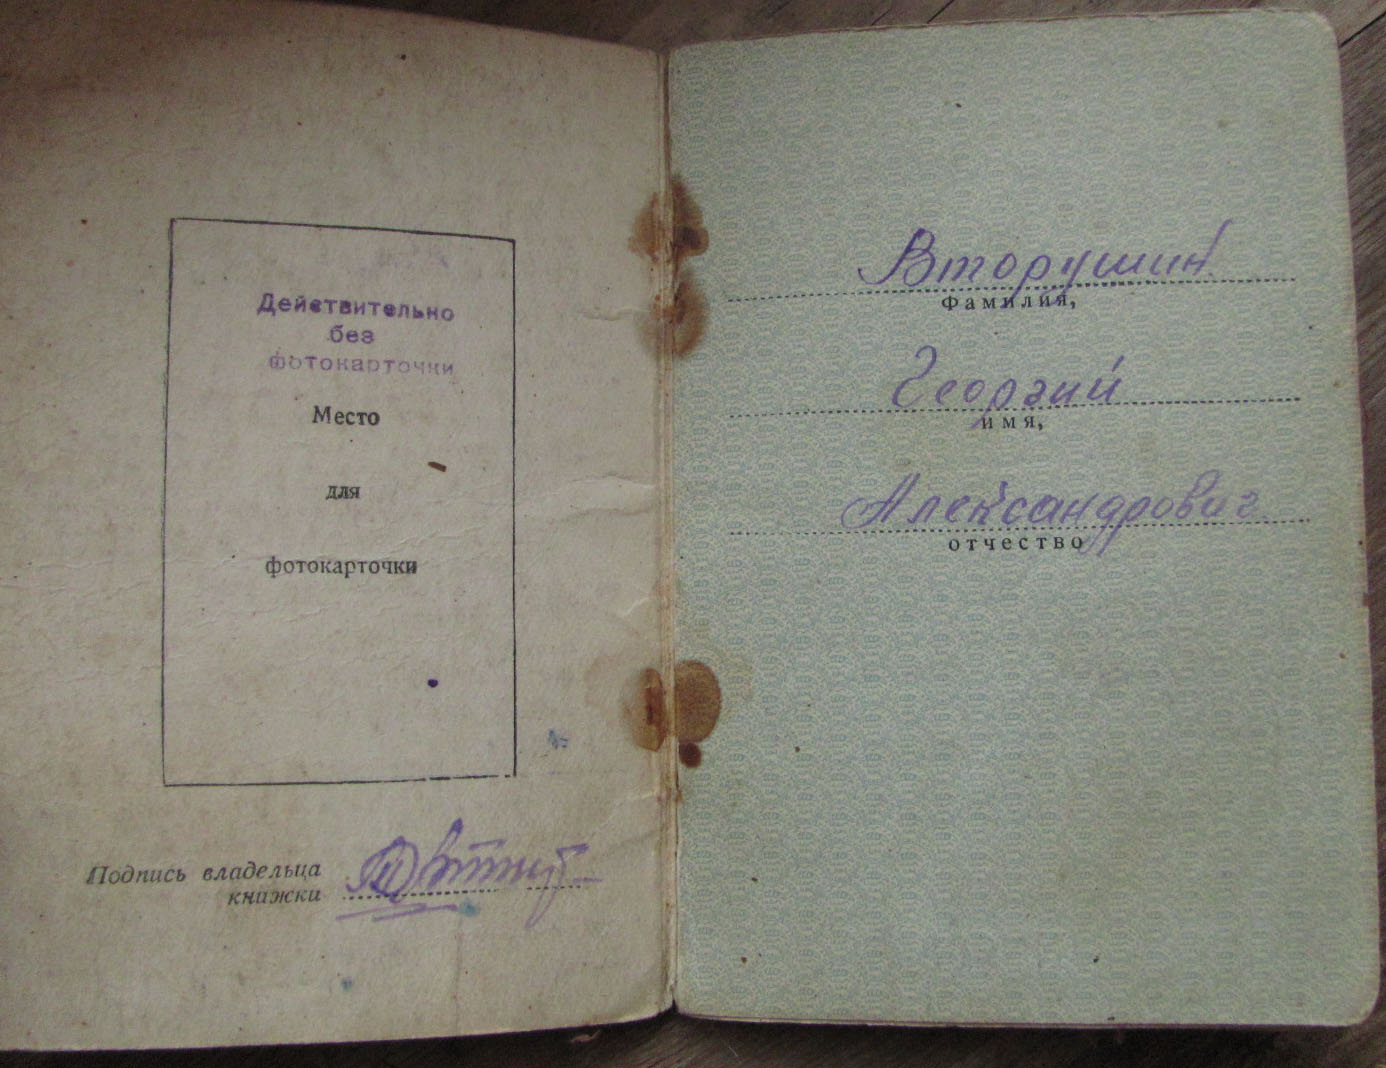 Действительно
без
фотокарточки
Место
для
фотокарточки
Подпись владельца
книжки
Вторушин
Фамилия,
Георгий
имя,
Александрович
отчество